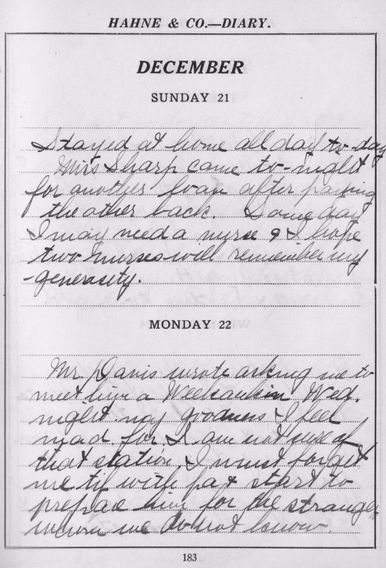 HAHNE & CO.—DIARY.
DECEMBER
SUNDAY 21
Stayed at home all day to-day
Mrs Sharp came to-night
for another loan after paying
the other back. Some day
I may need a nurse & I hope
two nurses will remember my
generosity.
MONDAY 22
Mr Davis wrote asking me to
meet him a Weehauken Wed.
night my goodness I feel
mad for I am not sure of
that station. I must forget
me ty with pa + start to
prepare him for the stranger
whom we do not know.
183